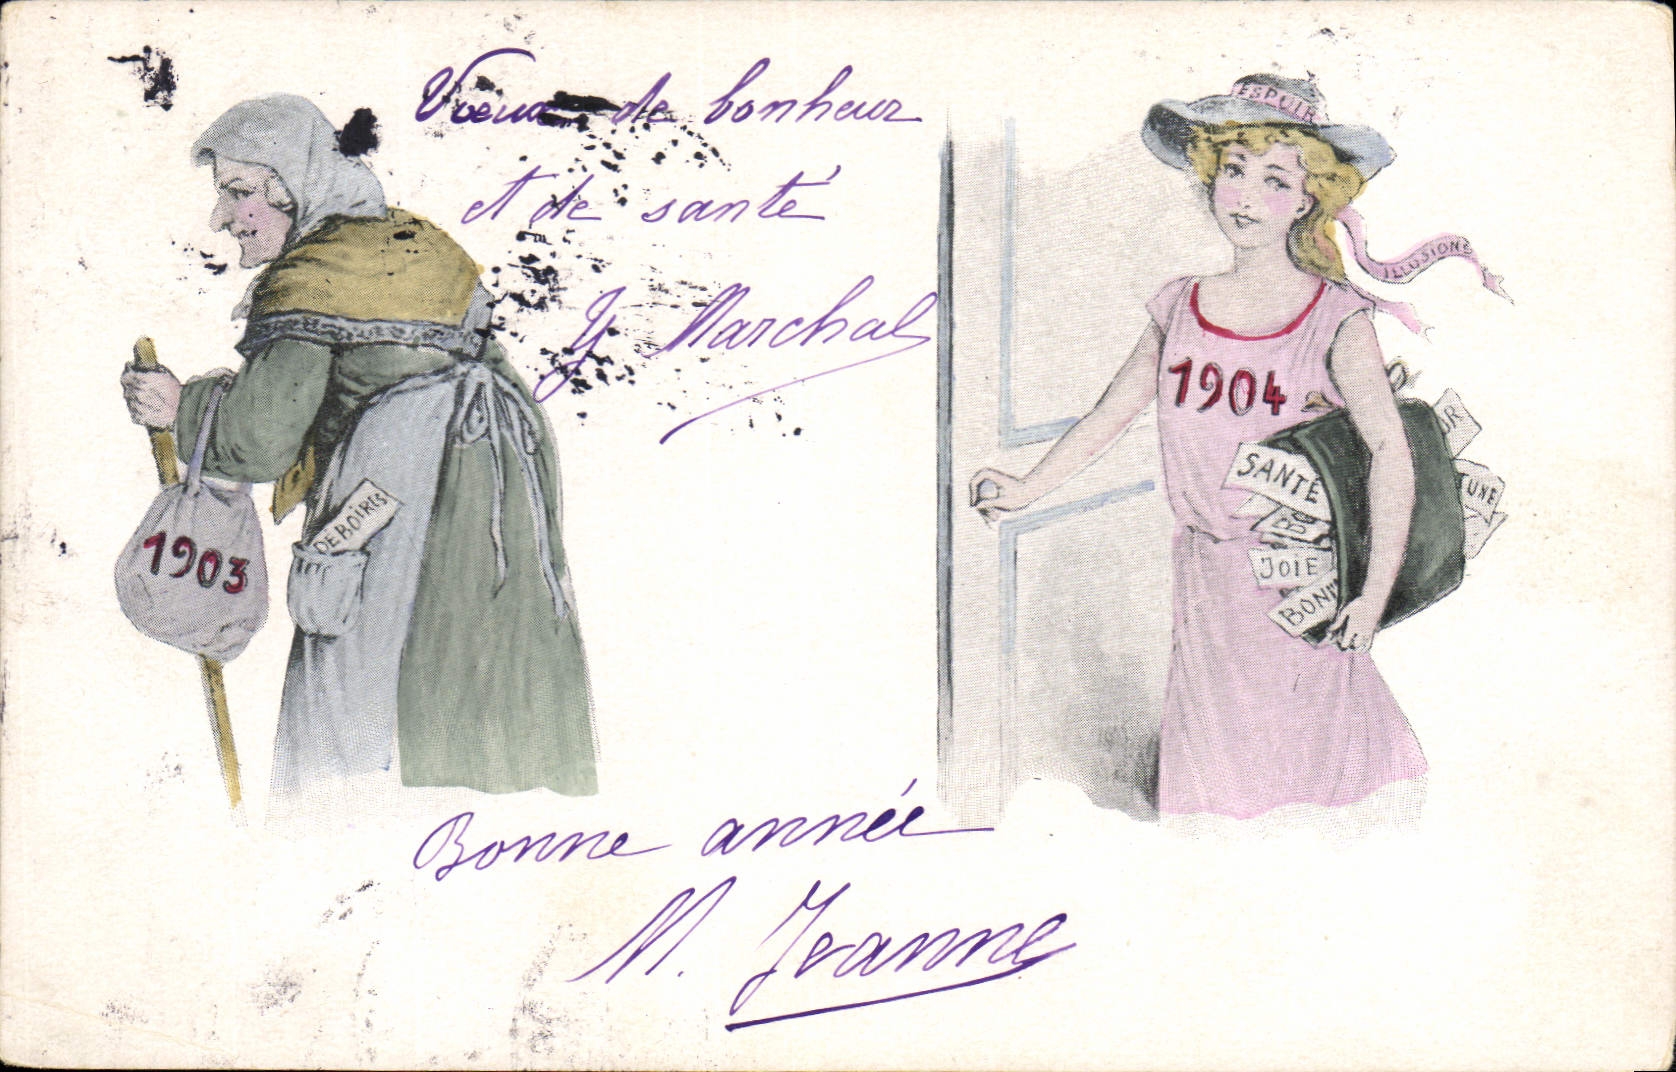 Vœux de bonheur
et de santé
Y Marchal
1903
DEBOIRES
ESPOIR
ILLUSIONS
1904
SANTÉ
JOIE
BON
UR
TUNE
Bonne année
M. Jeanne